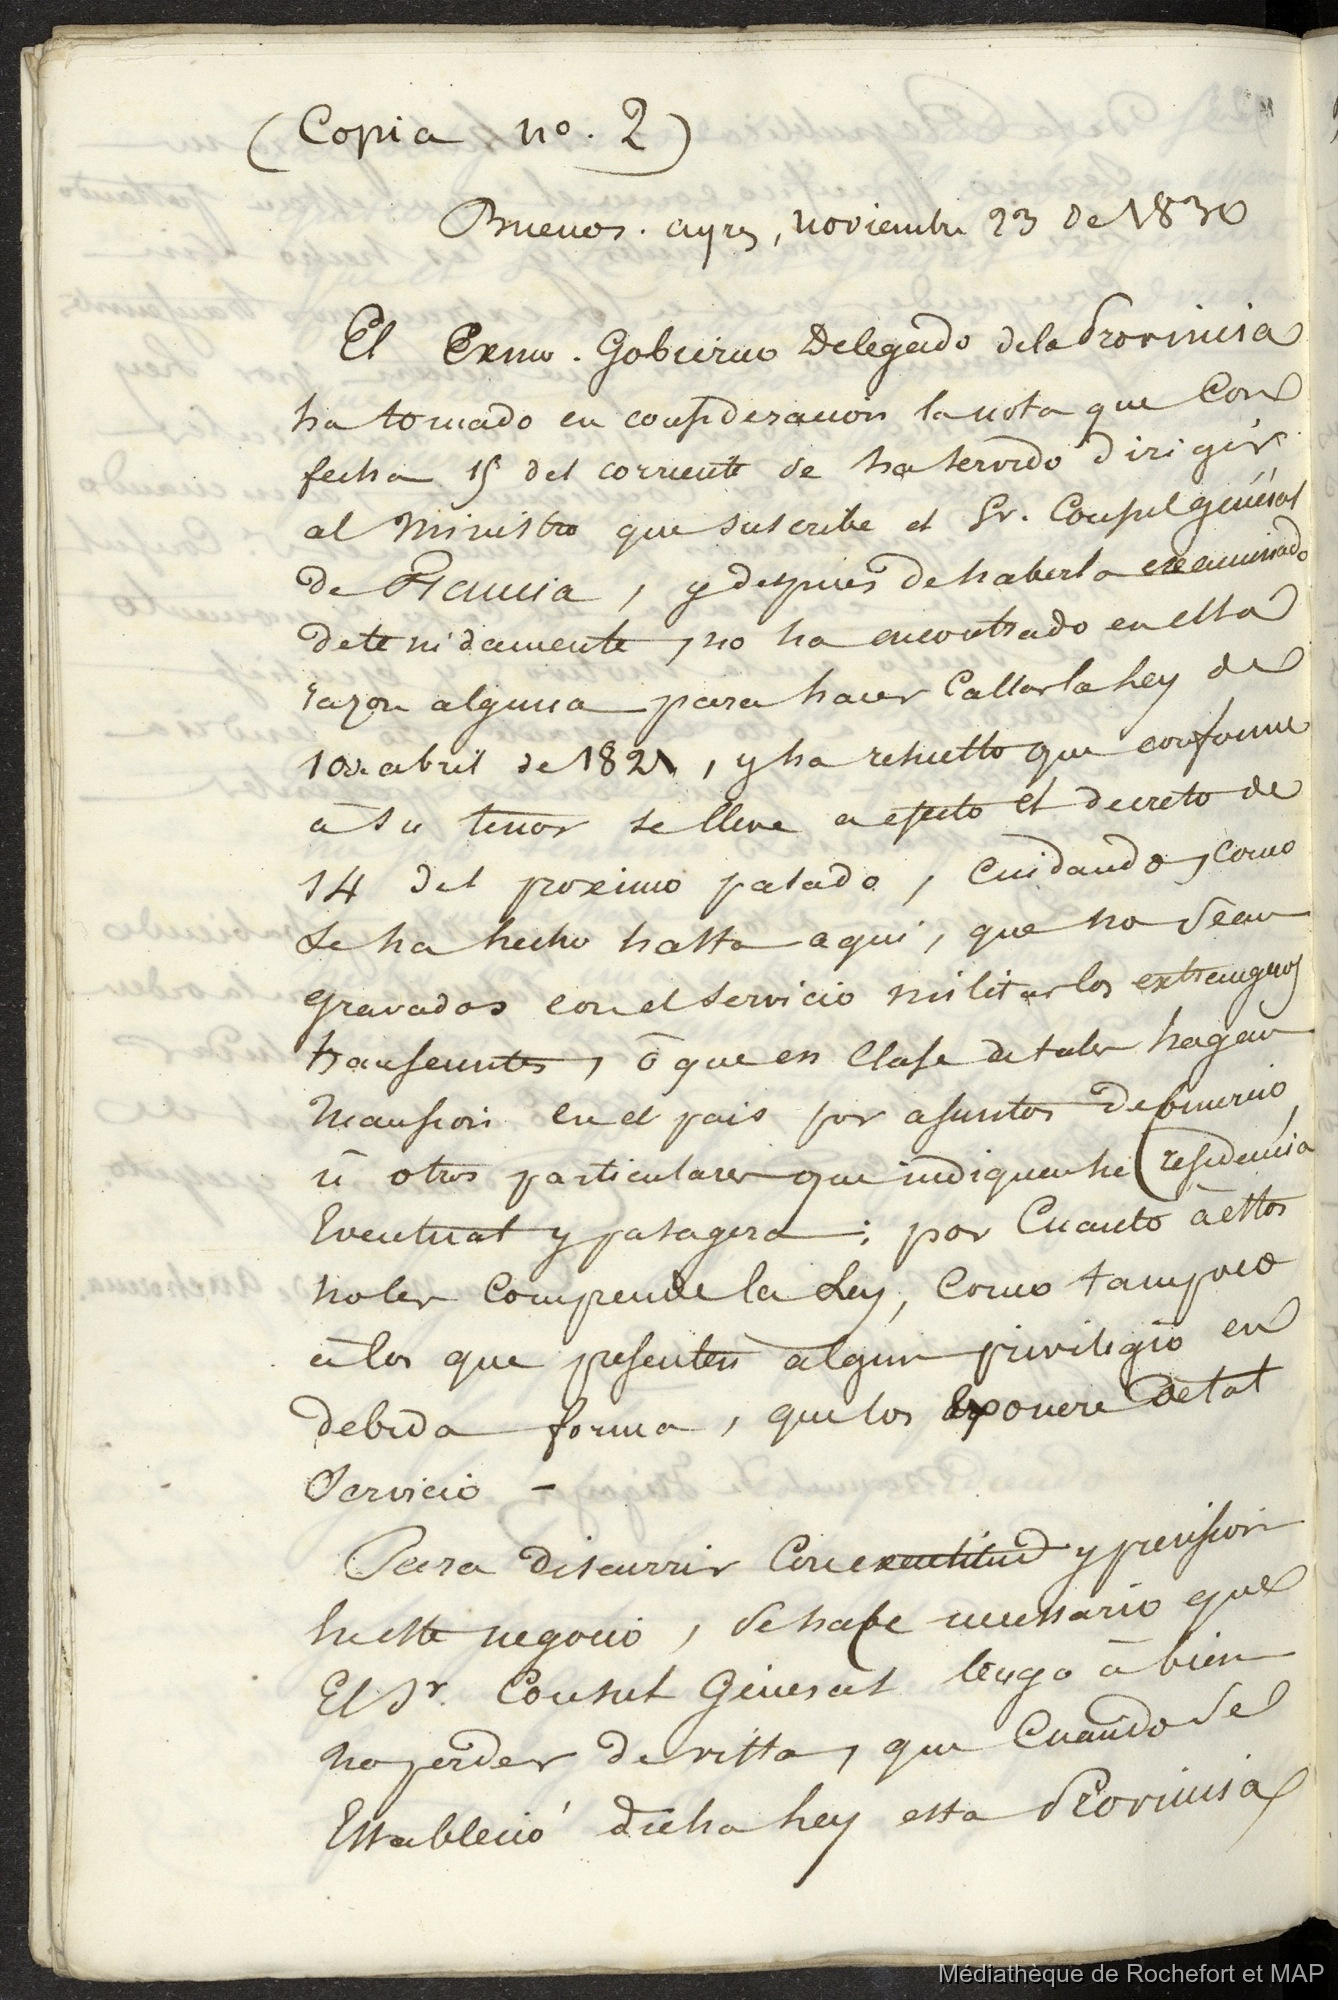 (Copia no. 2)
Buenos. ayres, noviembre 23 de 1830
El Exmo. Gobierno Delegado dela Provincia
ha tomado en consideracion la nota que Con
fecha 15 del corriente se ha servido dirigir
al Ministro que suscribe el Sr. Consul general
de Francia, y despues de haberla examinado
detenidamente, no ha encontrado en ella
razon alguna para hacer Callar la Ley de
10 de abril de 1821, y ha resuelto que conforme
a su tenor se lleve a efecto el decreto de
14 del proximo pasado, Cuidando, como
se ha hecho hasta aqui, que no sean
gravados con el servicio militar los extrangeros
transeuntes, ó que en Clase de tales hagan
Mansion en el pais por asuntos de Comercio,
ú otros particulares que indiquen he residencia
Eventual y pasagera; por Cuanto à estos
no les Comprende la Ley, Como tampoco
à los que presenten algun privilegio en
debida forma, que los Exonere de tal
Servicio -
Para discurrir Con exactitud y precision
en este negocio, se hace necessario que
El Sr. Consul General tenga à bien
no perder de vista, que Cuando se
Estableció dicha Ley esta Provincia
Médiathèque de Rochefort et MAP